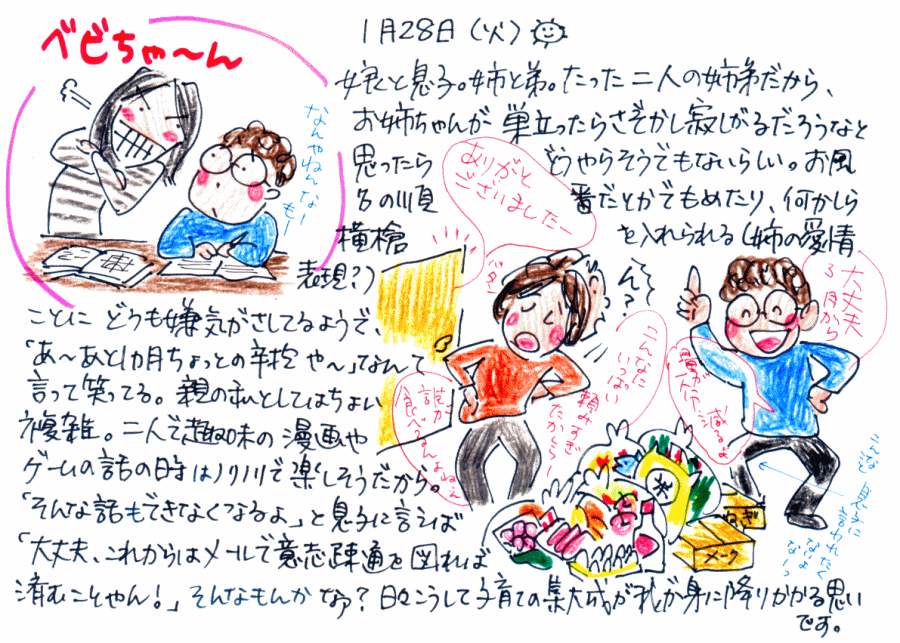 べびちゃ〜ん
なんやねんなもー
1月28日(火)
娘と息子。姉と弟。たった二人の姉弟だから、
お姉ちゃんが巣立ったらさぞかし寂しがるだろうなと
思ったらどうやらそうでもないらしい。お風
呂の順番だとかでもめたり、何かしら
横槍を入れられる(姉の愛情
表現?)
ことにどうも嫌気がさしてるようで、
「あ〜あと1ヵ月ちょっとの辛抱や〜」なんて
言って笑ってる。親の私としてはちょい
複雑。二人で趣味の漫画や
ゲームの話の時はノリノリで楽しそうだから。
「そんな話もできなくなるよ」と息子に言えば
「大丈夫、これからはメールで意志疎通を図れば
済むことやん!」そんなもんかなァ?日々こうして子育ての集大成が我が身に降りかかる思い
です。
ありがと
ございましたー
バタン
ん?
こんなに
いっぱい
頼みすぎ
たから〜
誰が
食べるんよねぇ
大丈夫
3月から
減るよ
米
ねぎ
メーク